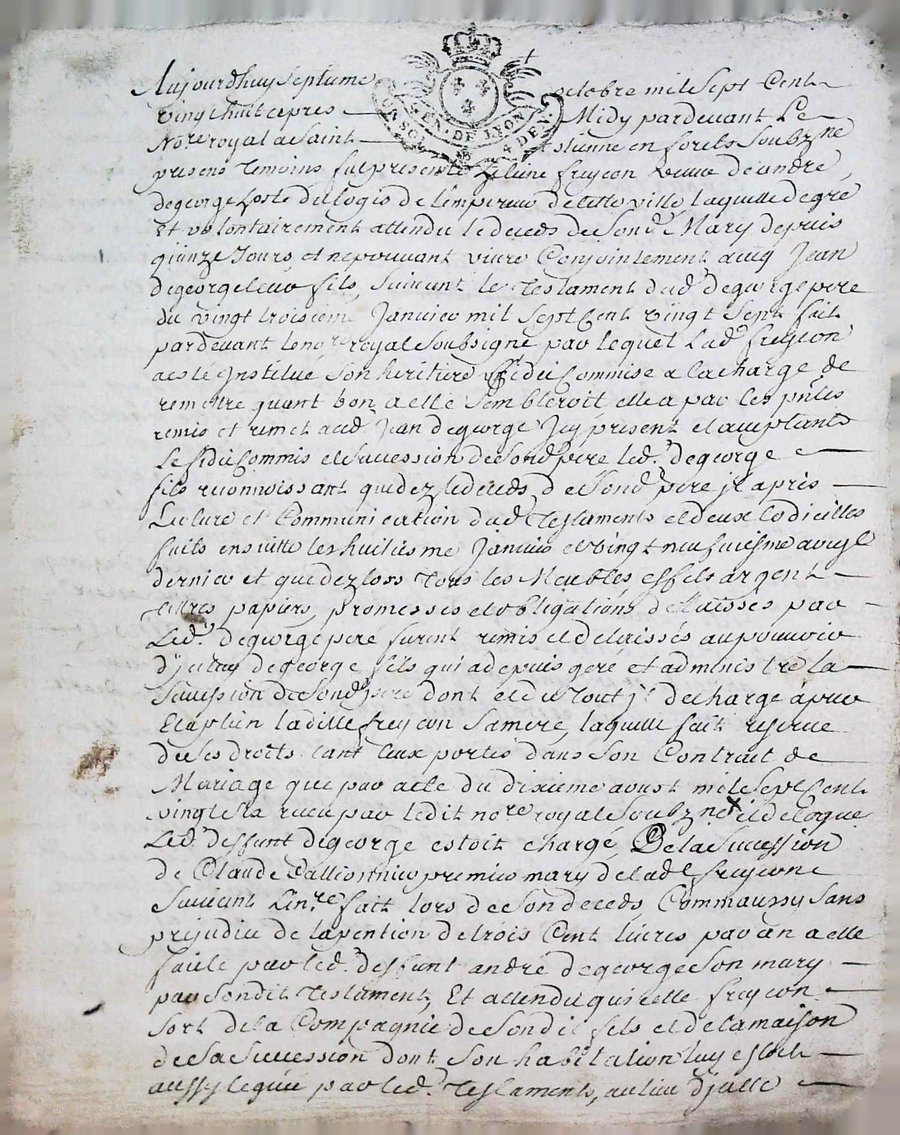 GEN. DE LYON
Aujourdhuy septieme octobre mil sept Cent
vingt huit apres Midy pardevant Le
Nore royal a Saint Estienne en forets Soubzne
presens temoins fut presente heleine freycon veuve d'andré
degeorge hoste du logis de l'empereur de cette ville laquelle de gré
et volontairement attendu le deceds de Sond. Mary depuis
quinze Jours, et ne pouvant vivre Conjointement avecq Jean
degeorge leur fils, Suivant le Testament dud. degeorge pere
du vingt troisieme Janvier mil Sept Cent vingt Sept fait
pardevant le nore royal Soubsigné par lequel Lad. freycon
a esté Instituée Son heritiere fidei Commise a la charge de
remettre quant bon a elle Sembleroit elle a par les pntes
remis et remet aud. Jean degeorge Icy present et acceptant
Le fidei Commis et Succession de Sond. pere led. degeorge
fils reconnoissant que dez le deceds de Sond. pere et apres
Lecture et Communication dud. Testament et deux Codicilles
faits ensuitte les huitiesme Janvier et vingt neufviesme avril
dernier et que dez lors Tous les Meubles effets argent
titres papiers, promesses et obligations delaissés par
Led. degeorge pere furent remis et delaissés au pouvoir
d'jceluy degeorge fils qui a depuis geré et administré la
Succession de Sond. pere dont et du tout jl decharge a pur
Et a plein laditte freycon Sa mere, laquelle fait reserve
de ses droits tant Eux portes dans Son Contrait de
Mariage que par acte du dixieme aoust mil Sept Cent
vingt Six receu par ledit nore royal Soubzne et de ce que
Led. deffunt degeorge estoit chargé De la Succession
de Claude premier mary de lad. freycone
Suivant Linre fait lors de Son deceds Comm aussy Sans
prejudice de la pention de trois Cent livres par an a elle
faite par led. deffunt andré degeorge Son mary
par Sondit Testament, Et attendu qu'icelle freycon
Sort de la Compagnie de Sondit fils et de la maison
de Sa Succession dont Son habitation luy estoit
aussy leguée par led. Testament, au lieu d'jcelle